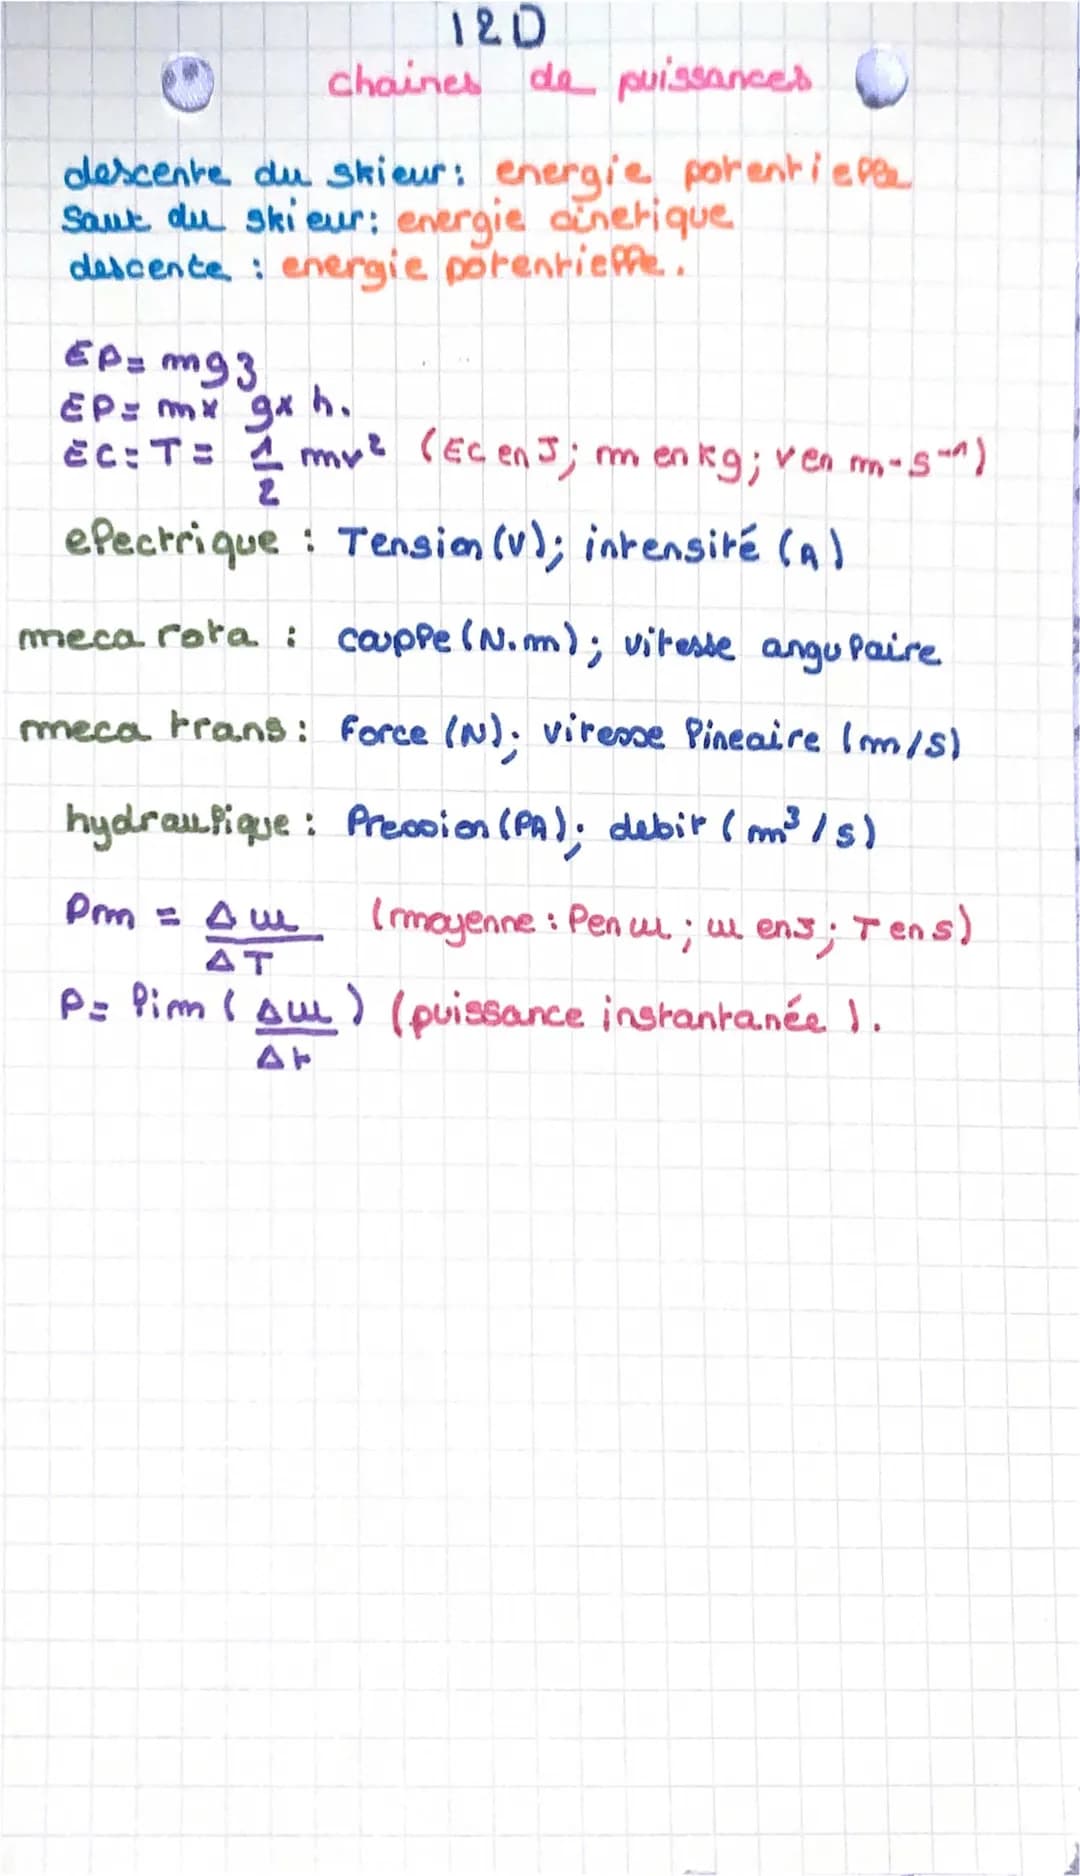 I2D
chaines de puissances
descente du skieur: energie potentielle
Saut du skieur: energie cinetique
descente : energie potentielle.
EP= mgz
EP= m x g x h.
EC=T= 1/2 mv² (EC en J; m en kg; v en m-s⁻¹)
electrique : Tension (V); intensité (A)
meca rota : couple (N.m); vitesse angulaire
meca trans: Force (N); vitesse lineaire (m/s)
hydraulique: Pression (PA); debit (m³/s)
Pm = ΔW/ΔT (moyenne: P en W; W en J; T en s)
P= lim (ΔW/Δt) (puissance instantanée).